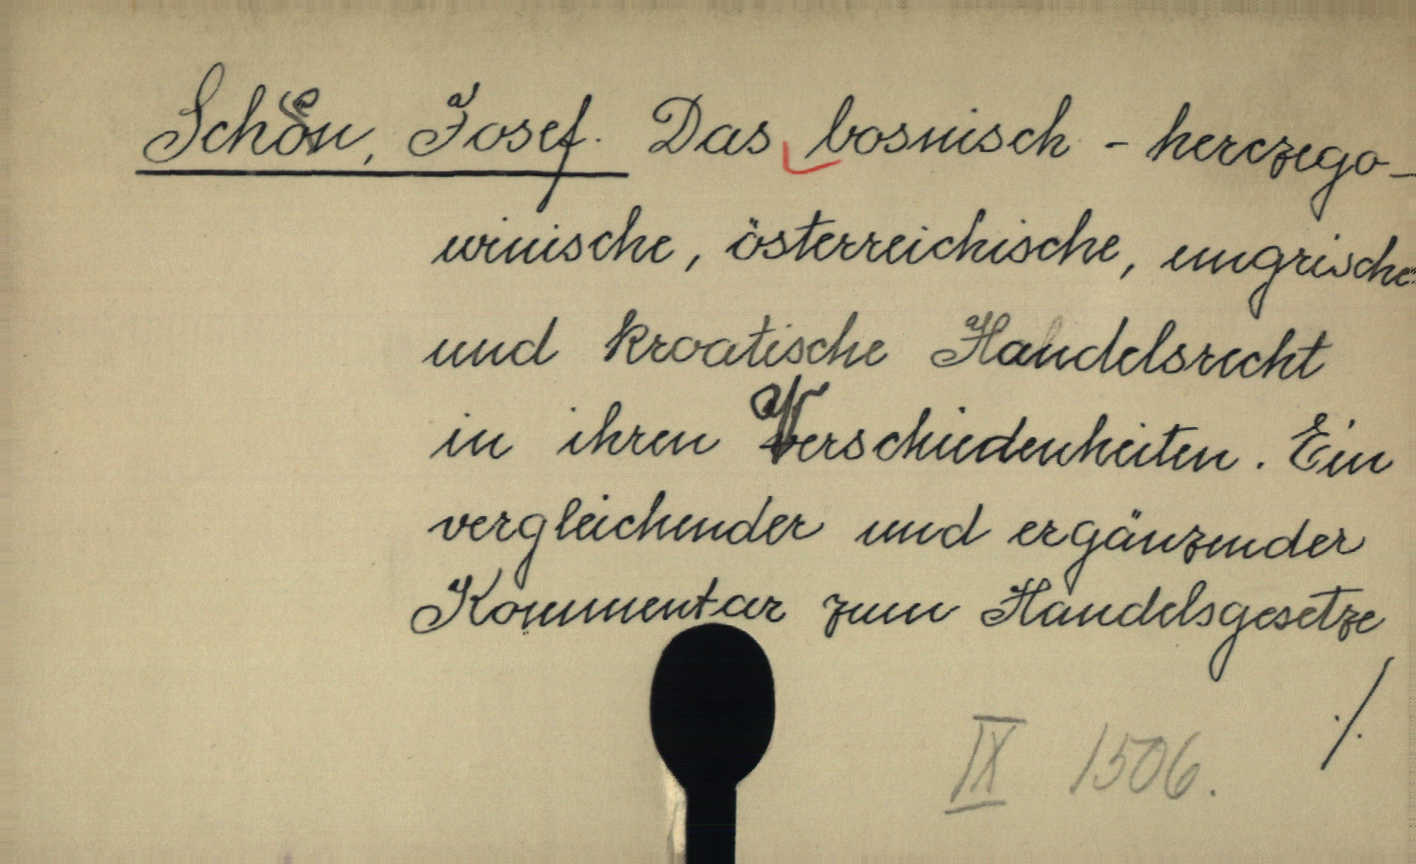 Schön, Josef. Das bosnisch - herczego-
winische, österreichische, ungrische
und kroatische Handelsrecht
in ihren Verschiedenheiten. Ein
vergleichender und ergänzender
Kommentar zum Handelsgesetze
./.
IX 1506.